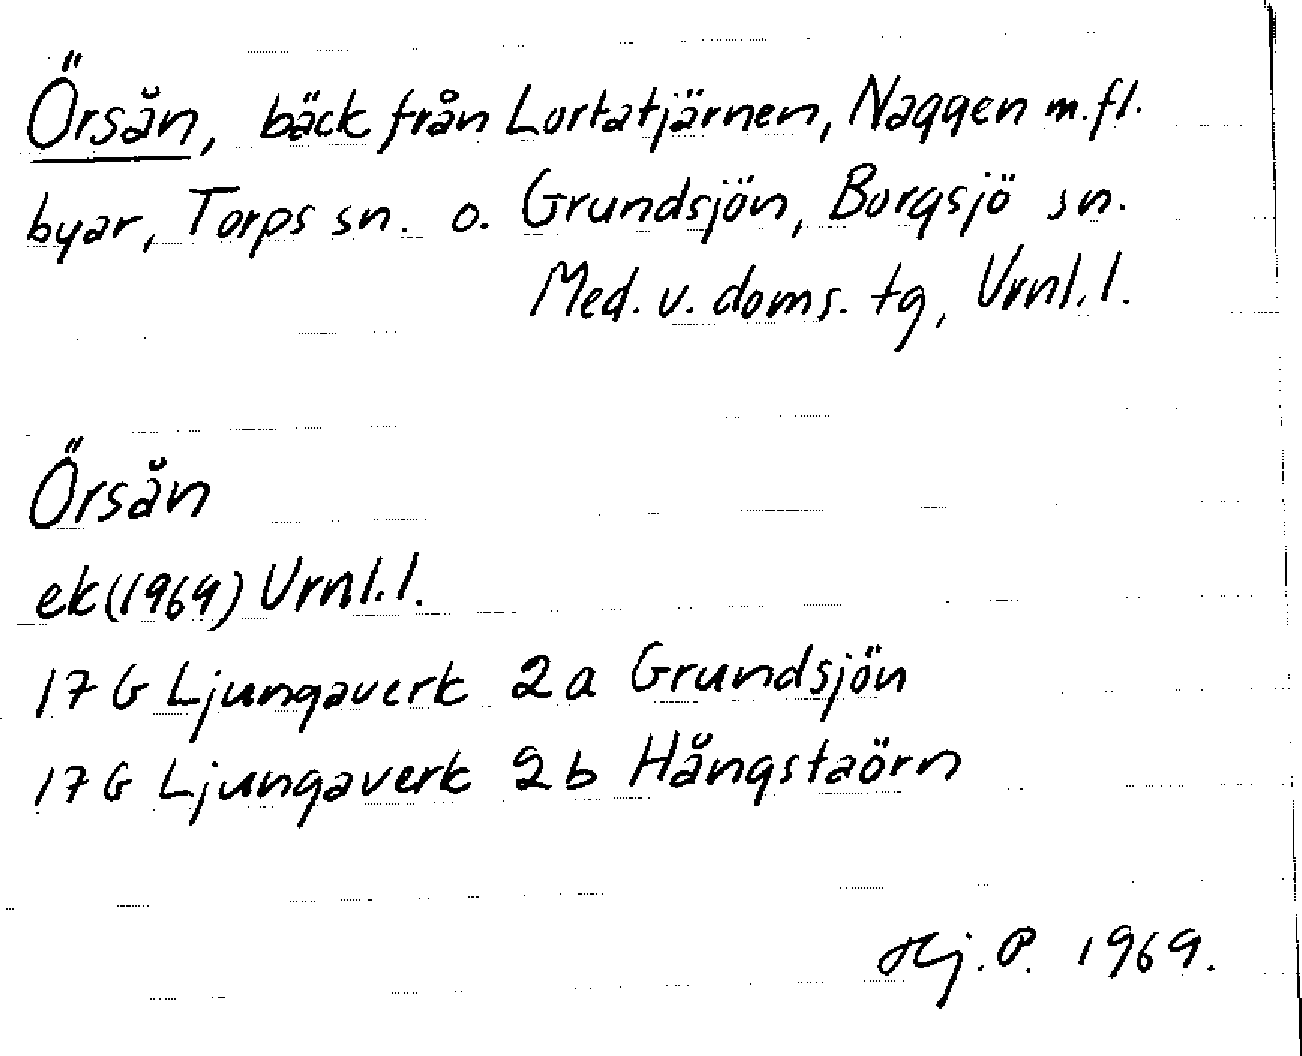 Örsån, bäck från Lortatjärnen, Naggen m.fl.
byar, Torps sn. o. Grundsjön, Borgsjö sn.
Med. v. doms. tg, Vrnl. l.
Örsån
ek (1969) Vrnl. l.
17 G Ljungaverk 2 a Grundsjön
17 G Ljungaverk 2 b Hångstaörn
Hj. P. 1969.